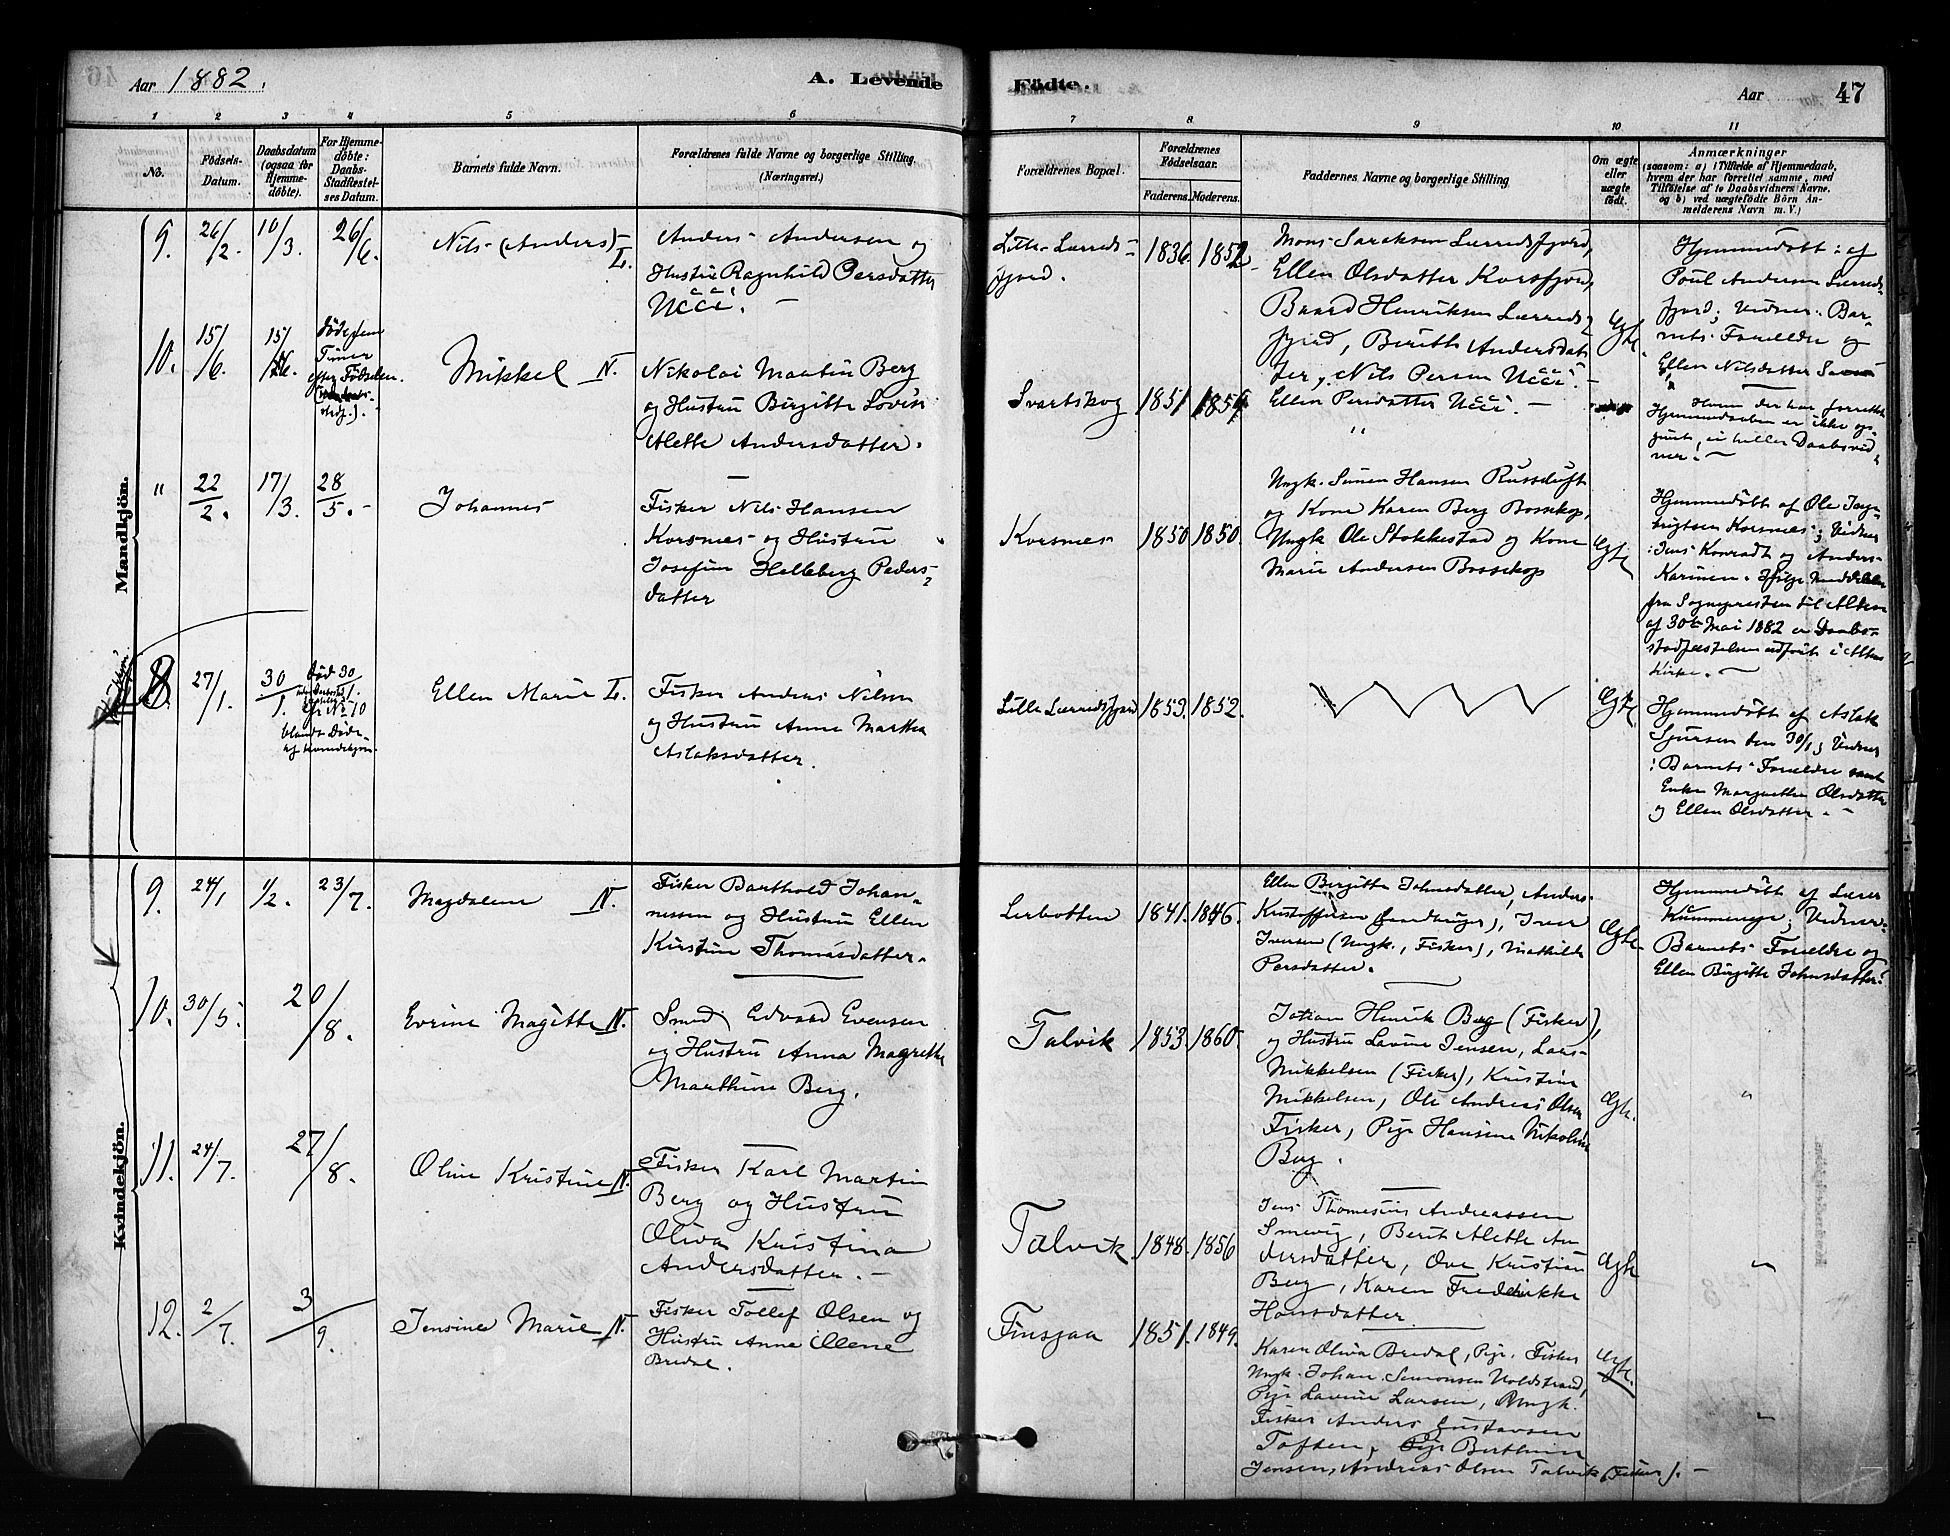 Aar 1882.
A. Levende
Födte.
Aar
47
1 2 3 4 5 6 7 8 9 10 11
No.
Födsels-
Datum.
Daabsdatum
(ogsaa for
Hjemme-
döbte).
For Hjemme-
döbte:
Daabs-
Stadfæstel-
ses Datum.
Barnets fulde Navn.
Forældrenes fulde Navne og borgerlige Stilling.
(Næringsvei.)
Forældrenes Bopæl.
Forældrenes
Födselsaar.
Faderens. Moderens.
Faddernes Navne og borgerlige Stilling
Om ægte
eller
uægte
födt.
Anmærkninger
(saasom: a) i Tilfælde af Hjemmedaab,
hvem der har forrettet samme, med
Tilföielse af to Daabsvidners Navne,
og b) ved uægtefödte Börn An-
melderens Navn m. V.)
Mandkjön.
9. 26/2. 10/3. 26/6. Nils (Anders) L.
Anders Andersen og
Hustru Ragnhild Persdatter
Ucci. —
Lille Lærreds-
fjord.
1836. 1852.
Mons Saraksen Lærredsfjord,
Ellen Olsdatter Korsfjord,
Baard Henriksen Lærreds-
fjord, Birith Andersdat-
ter, Nils Persen Ucci. —
Ellen Persdatter Ucci. —
Egte.
Hjemmedøbt af
Poul Andersen Lærreds-
fjord; Vidner: Bar-
nets Forældre og
Ellen Nilsdatter
10. 15/6. 15/6.
Døde fem
Timer
efter Fødselen.
Mikkel N.
Nikolai Martin Berg
og Hustru Birgitte Lovise
Alette Andersdatter.
Svartskog 1851. 1854
"
Hvem der har forrettet
Hjemmedaaben er ikke op-
givet, ei heller Daabsvid-
ner. —
" 22/2. 17/3. 28/5. Johannes
Fisker Nils Hansen
Korsnes og Hustru
Josefine Helleberg Peders-
datter
Korsnes 1850 1850.
Ungk. Simen Hansen Russeluft
og Kone Karen Berg Bossekop,
Ungk Ole Stokkestad og Kone
Marie Andersen Bossekop
Egte
Hjemmedøbt af Ole Inge-
brigtsen Korsnes; Vidner
: Jens Konradt og Anders
Karinen. Ifølge Meddelelse
fra Sognepresten til Alten
af 30te Mai 1882 er Daabs-
stadfæstelsen udført i Altens
Kirke. —
8. 27/1. 30/1.
Død 30/1.
cfr No 10
blandt Døde
af Kvindekjøn.
Ellen Marie L.
Fisker Anders Nilsen
og Hustru Anne Marthe
Aslaksdatter.
Lille Lærredsfjord 1853. 1852.
Egte
Hjemmedøbt af Aslak
Sjursen den 30/1; Vidner
: Barnets Forældre samt
Enke Margrethe Olsdatter
og Ellen Olsdatter. —
Kvindekjön.
9. 24/1 1/2. 23/7. Magdalene N.
Fisker Barthold Johan-
nessen og Hustru Ellen
Kirstine Thomasdatter.
Lerbotten 1841. 1846.
Ellen Birgitte Johnsdatter, Anders
Kristoffersen (Gaardbruger), Iver
Iversen (Ungk., Fisker), Mathilde
Persdatter.
Egte
Hjemmedøbt af Lærer
Kummeneje; Vidner
Barnets Forældre og
Ellen Birgitte Johnsdatter.
10. 30/5. 20/8. Evrine Magitte N.
Smed Edvard Evensen
og Hustru Anna Magrethe
Marthine Berg.
Talvik 1853. 1860.
Johan Henrik Berg (Fisker),
og Hustru Lavine Jensen, Lars
Mikkelsen (Fisker), Kristine
Mikkelsen, Ole Andreas Olsen
Fisker, Pige Hansine Nikoline
Berg.
Egte.
"
11. 24/7. 27/8. Oline Kristine N.
Fisker Karl Martin
Berg og Hustru
Oliva Kristina
Andersdatter. —
Talvik 1848. 1856
Jens Thomesius Andreassen
Smevig, Berit Alette An-
dersdatter, Ove Kristian
Berg, Karen Fredrikke
Hansdatter
Egte
"
12. 2/7. 3/9. Jensine Marie N.
Fisker Tollef Olsen og
Hustru Anne Elene
Bredal.
Finsjaa 1851. 1849.
Karen Oliva Bredal, Pige, Fisker
Ungk. Johan Simonsen Uoldstrand,
Pige Lavine Larsen, Ungk.
Fisker Anders Gustavsen
Toften, Pige Berthine
Jensen, Andreas Olsen Talvik (Fisker). —
Egte.
"